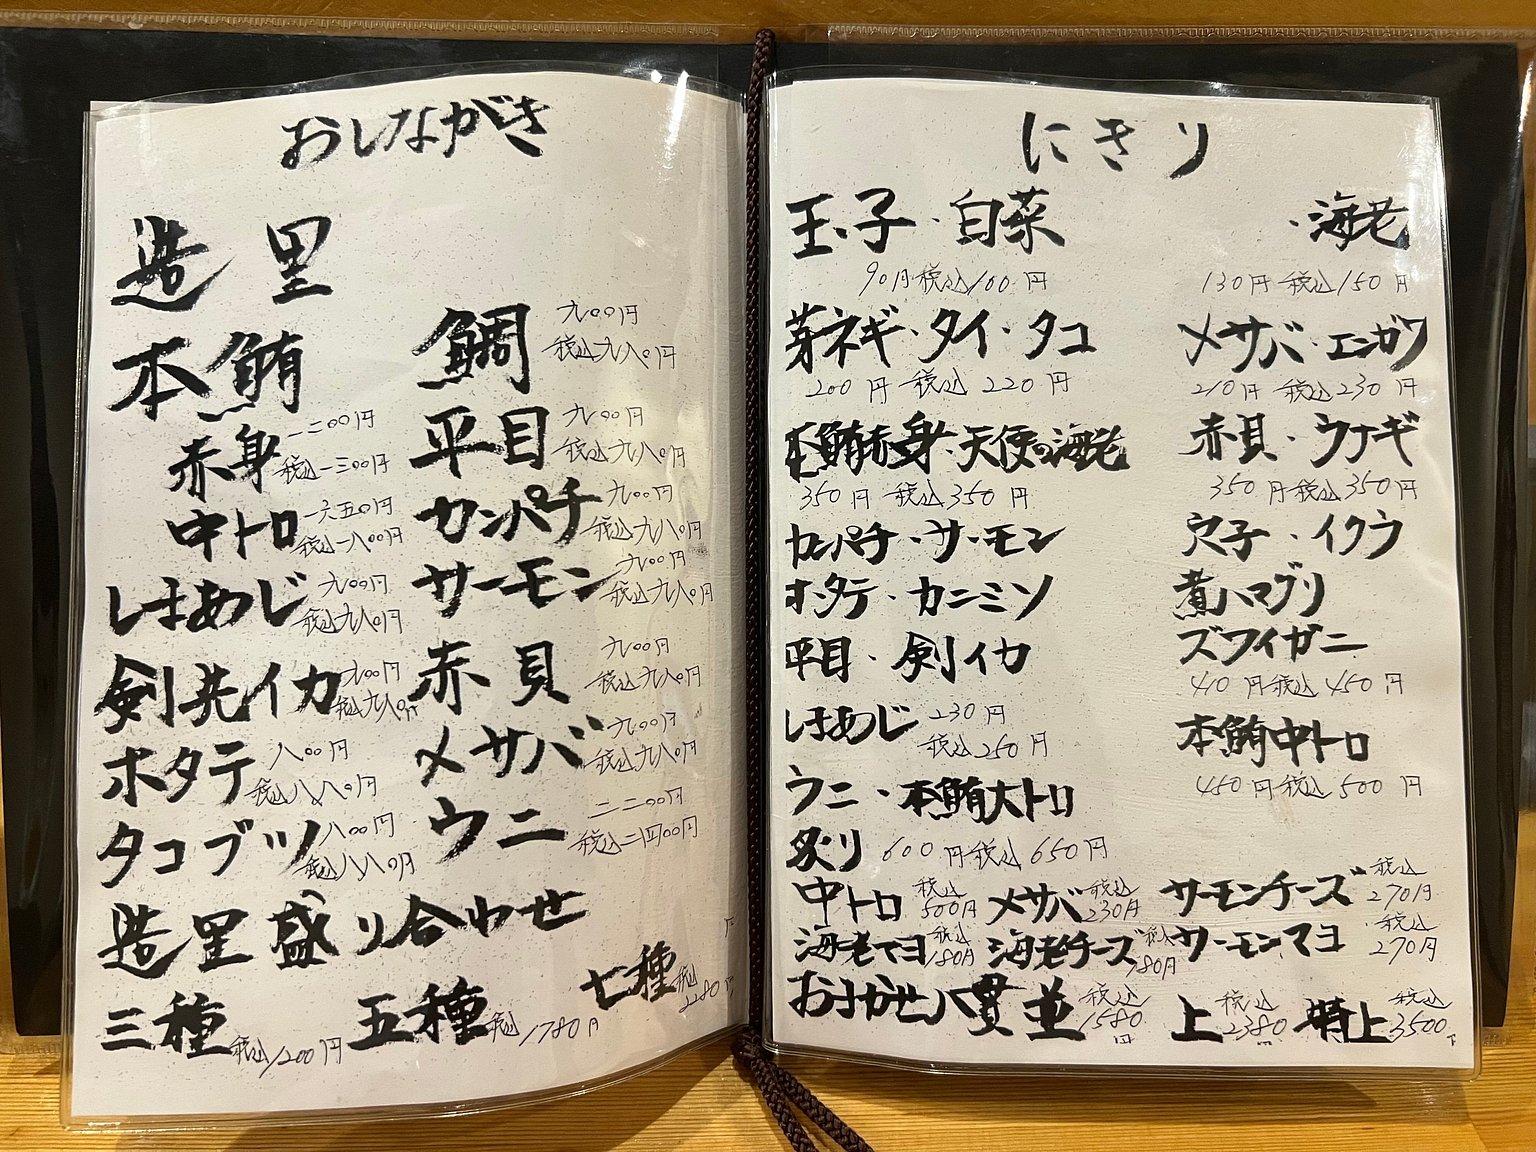 おしながき
造里
本鮪
赤身 一二〇〇円
税込一三〇〇円
中トロ 一六五〇円
税込一八〇〇円
しまあじ 九〇〇円
税込九八〇円
剣先イカ 九〇〇円
税込九八〇円
ホタテ 八〇〇円
税込八八〇円
タコブツ 八〇〇円
税込八八〇円
鯛 九〇〇円
税込九八〇円
平目 九〇〇円
税込九八〇円
カンパチ 九〇〇円
税込九八〇円
サーモン 九〇〇円
税込九八〇円
赤貝 九〇〇円
税込九八〇円
〆サバ 九〇〇円
税込九八〇円
ウニ 二二〇〇円
税込二四〇〇円
造里盛り合わせ
三種 税込1200円 五種 税込1780円 七種 税込
にぎり
玉子・白菜 ・海老
90円税込100円 130円税込150円
芽ネギ・タイ・タコ 〆サバ・エンガワ
200円税込220円 210円税込230円
本鮪赤身・天使の海老 赤貝・ウナギ
350円税込350円 350円税込350円
カンパチ・サーモン 穴子・イクラ
ホタテ・カニミソ 煮ハマグリ
平目・剣イカ ズワイガニ
410円税込450円
しまあじ 230円
税込250円
本鮪中トロ
450円税込500円
ウニ・本鮪大トロ
600円税込650円
炙り
中トロ 税込500円 〆サバ 税込230円 サーモンチーズ 税込270円
海老マヨ 税込180円 海老チーズ 税込180円 サーモンマヨ 税込270円
おまかせ八貫 並 税込1580円 上 税込2380円 特上 税込3500円